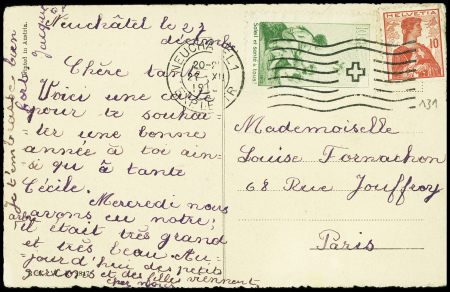 Neuchâtel le 27
décembre
Chère tante
Voici une carte
pour te souhai-
ter une bonne
année à toi ain-
si qu'à tante
Cécile.
Mercredi nous
avons eu notre
arbre
il était très grand
et très beau Au-
jour d'hui des petits
garçons et des filles viennent
chez nous
Je t'embrasse bien
fort
Jacques
Printed in Austria.
NEUCHATEL 1
20-
27. XII
HELVETIA
10
131
Mademoiselle
Louise Fornachon
68 Rue Jouffroy
Paris